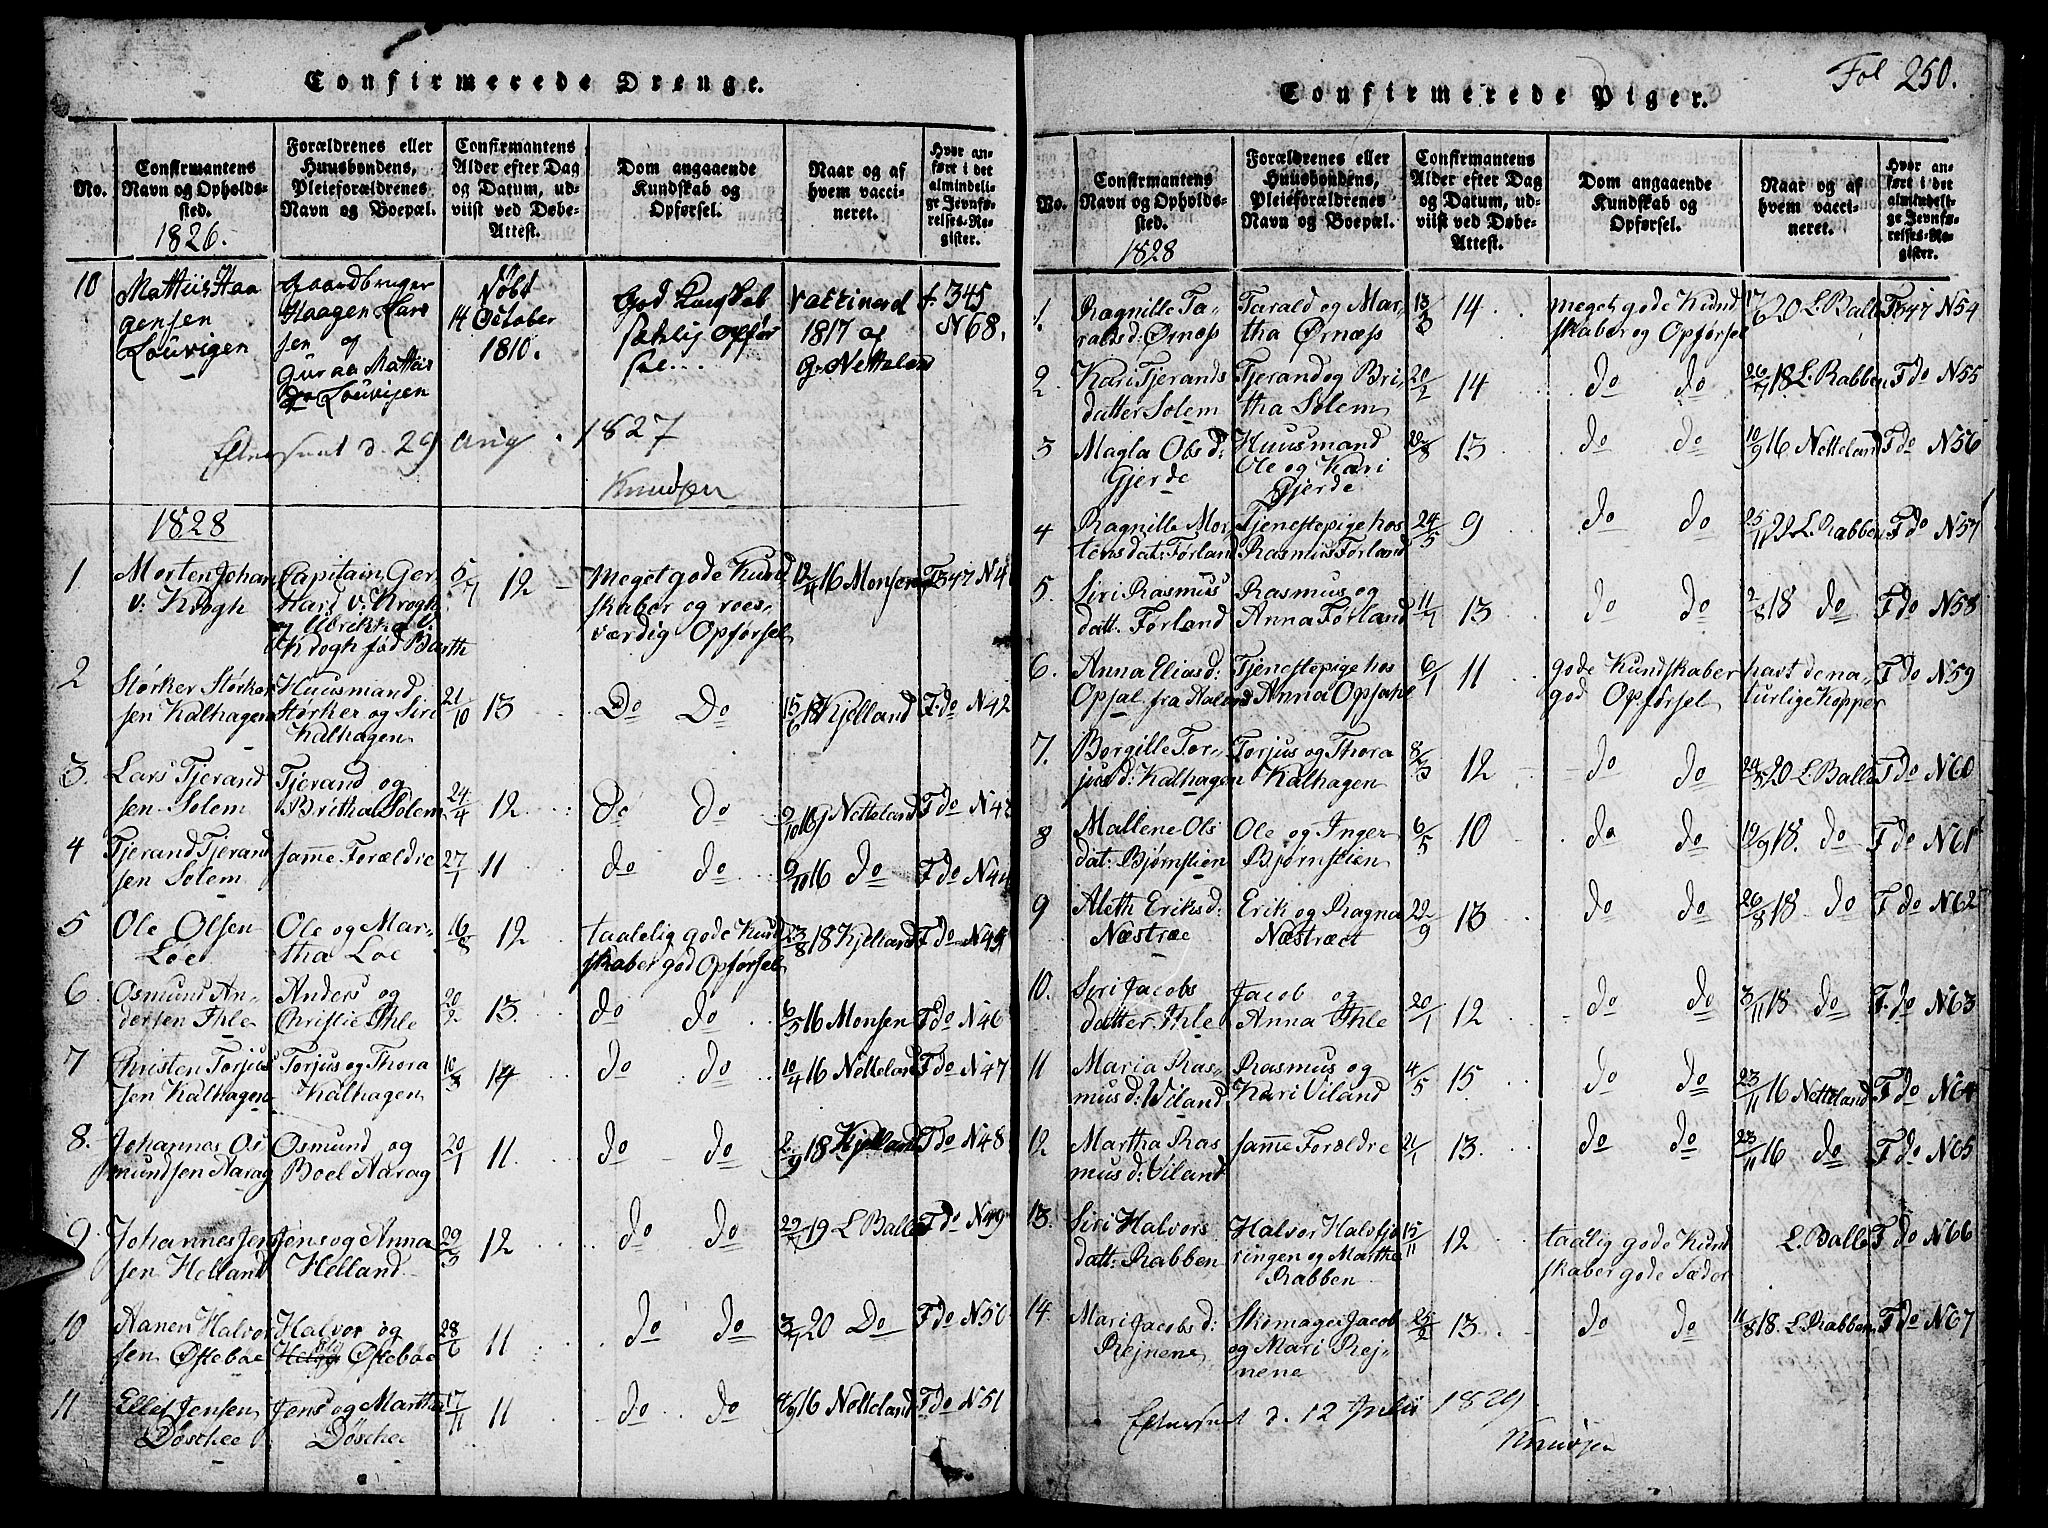 Confirmerede Drenge.
No.
Confirmantens Navn og Opholdssted.
1826.
Forældrenes eller Huusbondens, Pleieforældrenes Navn og Boepæl.
Confirmantens Alder efter Dag og Datum, udviist ved Døbe-Attest.
Dom angaaende Kundskab og Opførsel.
Naar og af hvem vaccineret.
Hvor anført i det almindelige Jevnførelses-Register.
10
Mattiis Haa
gensen
Louvigen
Gaardbruger
Haagen Lars
sen og
Guraa Mattiis
do Louvigen
Døbt
14 October
1810.
God Kunskab
sædelig opfør
sel...
Vaktinerd
1817 af
G. Netteland
f. 345
N 68.
Efterseet d. 29 Aug. 1827
Knudsen
1828
1
Morten Johan
v: Krogh
Capitain Ger
hard v: Krogh
og Ulrikka v:
Krogh fød Barth
5/7 12
Meget gode Kund
skaber og roes-
værdig Opførsel
12/4 16 Monsen
F 347 N 41
2
Størker Størker
sen Kalhagen
Huusmand
Størker og Siri
Kalhagen
21/10 13
Do Do
15/6 18 Kjelland
F. do N 42
3.
Lars Tjerand
sen Solem
Tjerand og
Britha Solem
24/4 12
Do Do
9/10 16 Netteland
F do N 43
4
Tjerand Tjerand
sen Solem
samme Forældre
27/1 11
do do
9/10 16 do
F do N 44
5
Ole Olsen
Løe
Ole og Mar-
tha Løe
16/8 12
taalelig gode Kund
skaber god Opførsel
23/8 18 Kjelland
F do N 45
6
Osmund An-
dersen Ihle
Anders og
Christie Ihle
20/2 13.
do do
6/5 16 Monsen
F do N 46
7
Christen Torjus
sen Kalhagen
Torjus og Thora
Kalhagen
18/3 14
do do
10/4 16 Netteland
F do N 47
8.
Johannes Os
mundsen Aarag
Osmund og
Boel Aarag
20/1 11.
do do
2/9 18 Kjelland
F do N 48
9
Johannes Jen
sen Helland
Jens og Anna
Helland
29/3 12
do do
19 L Balle
F do N 49
10
Aanen Halvor
sen Østebøe
Halvor og
Østebøe
28/6 11
do do
20 Do
F do N 50
11
Ellef Jensen
Døschee
Jens og Martha
Døschee
17/11 11
do do
16 Netteland
F do N 51
Fol 250.
Confirmerede Piger.
No.
Confirmantens Navn og Opholdssted.
1828
Forældrenes eller Huusbondens, Pleieforældrenes Navn og Boepæl.
Confirmantens Alder efter Dag og Datum, udviist ved Døbe-Attest.
Dom angaaende Kundskab og Opførsel.
Naar og af hvem vaccineret.
Hvor anført i det almindelige Jevnførelses-Register.
1.
Ragnille Ta-
ralds d: Ørnæss
Tarald og Mar-
tha Ørnæss
14
meget gode Kund
skaber og Opførsel
17/6 20 L. Balle
F 347 N 54
2
Kari Tjerands
datter Solem
Tjerand og Bri-
tha Solem
20/2 14
do do
26/7 18 L. Rabben
F do N 55
3
Magla Ols d:
Gjerde
Huusmand
Ole og Kari
Gjerde
13
do do
10/9 16 Netteland
F do N 56
4
Ragnille Mor-
tens dat: Førland
Tjenestepige hos
Rasmus Førland
24/5 9
do do
25/11 22 L. Rabben
F do N 57
5.
Siri Rasmus
datt. Førland
Rasmus og
Anna Førland
11/7 13
do do
2/8 18 do
F do N 58
6.
Anna Elias d:
Opsal fra Haland
Tjenestepige hos
Anna Opsahl
6/1 11
gode Kundskaber
god Opførsel
havt de na-
turlige Kopper
F do N 59
7.
Borgille Tor-
jus d: Kalhagen
Torjus og Thora
Kalhagen
8/3 12
do do
20 L. Balle
F do N 60
8
Mallene Ols
dat: Bjørnstien
Ole og Inger
Bjørnstien
6/5 10
do do
19/9 18. do
F do N 61
9
Aleth Eriks d:
Næstræe
Erik og Ragna
Næstræet
22/9 13
do do
26/8 18 do
F do N 62
10.
Siri Jacobs
datter Ihle
Jacob og
Anna Ihle
20/1 12
do do
3/11 18 do
F. do N 63
11
Maria Ras-
mus d: Viland
Rasmus og
Kari Viland
4/5 15
do do
23/11 16 Netteland
F do N 64
12
Martha Ras
mus d: Viland
samme Forældre
21/1 13.
do do
23/11 16 do
F do N 65
13.
Siri Halvors
datt: Rabben
Halvor Halvfjo
ringen og Martha
Rabben
15/11 12
taalig gode Kund
skaber gode Sæder
L. Balle
F do N 66
14.
Mari Jacobs d:
Rejnene
Skomager Jacob
og Mari Rej-
nene
25/2 13
do do
11/8 18. L. Rabben
F do N 67
Efterseet d. 12 Julii 1829
Knudsen